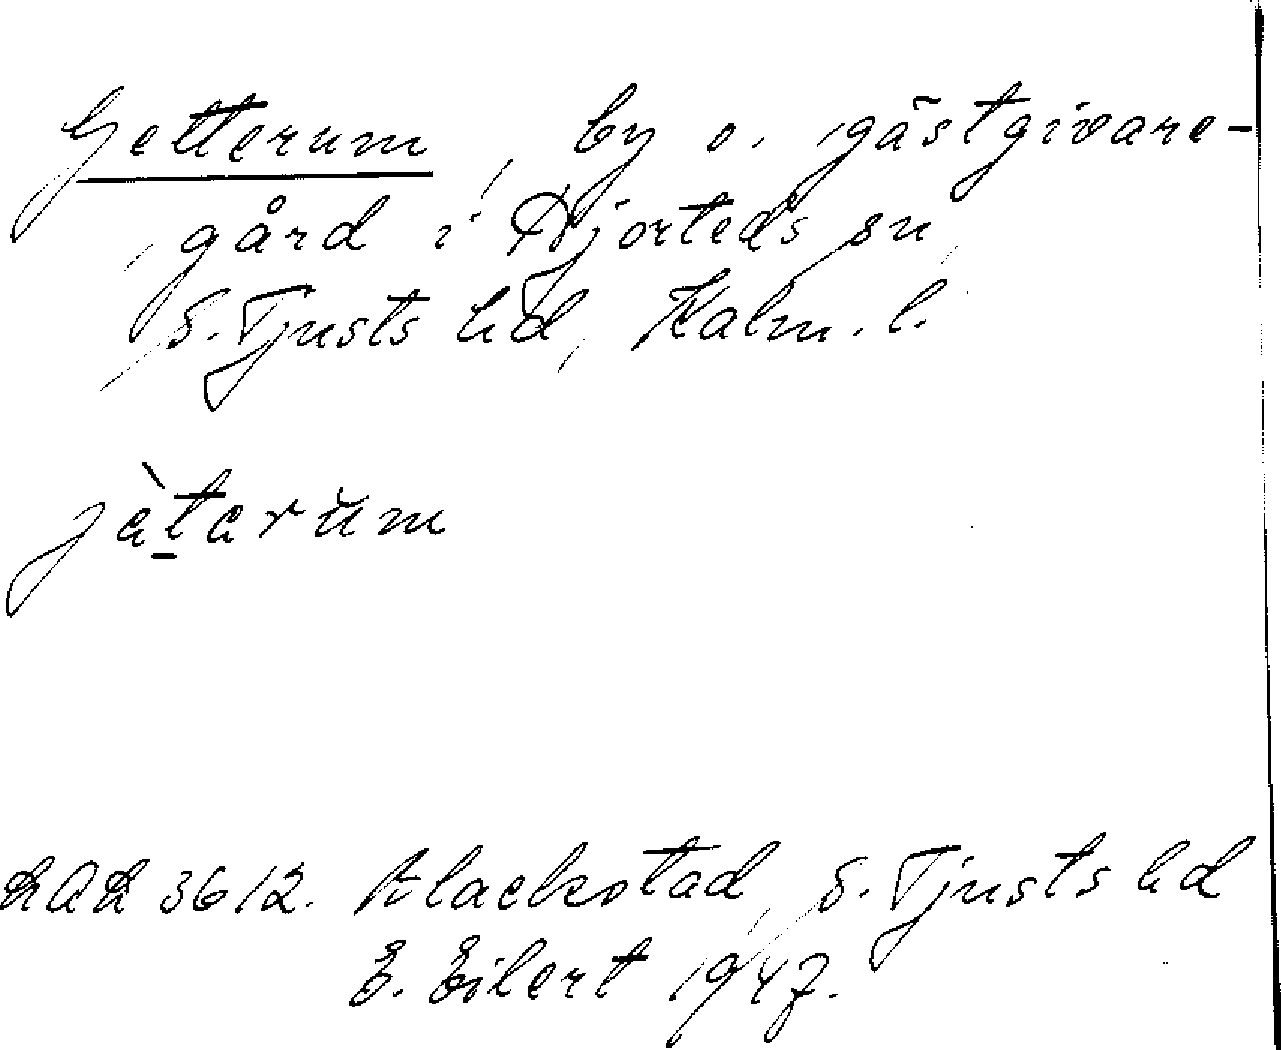 Getterum, by o. gästgivare-
gård i Hjorteds sn,
S. Tjusts hd, Kalm. l.
jèta̱rŭm
3612. Blackstad, S. Tjusts hd
E. Eilert 1947.